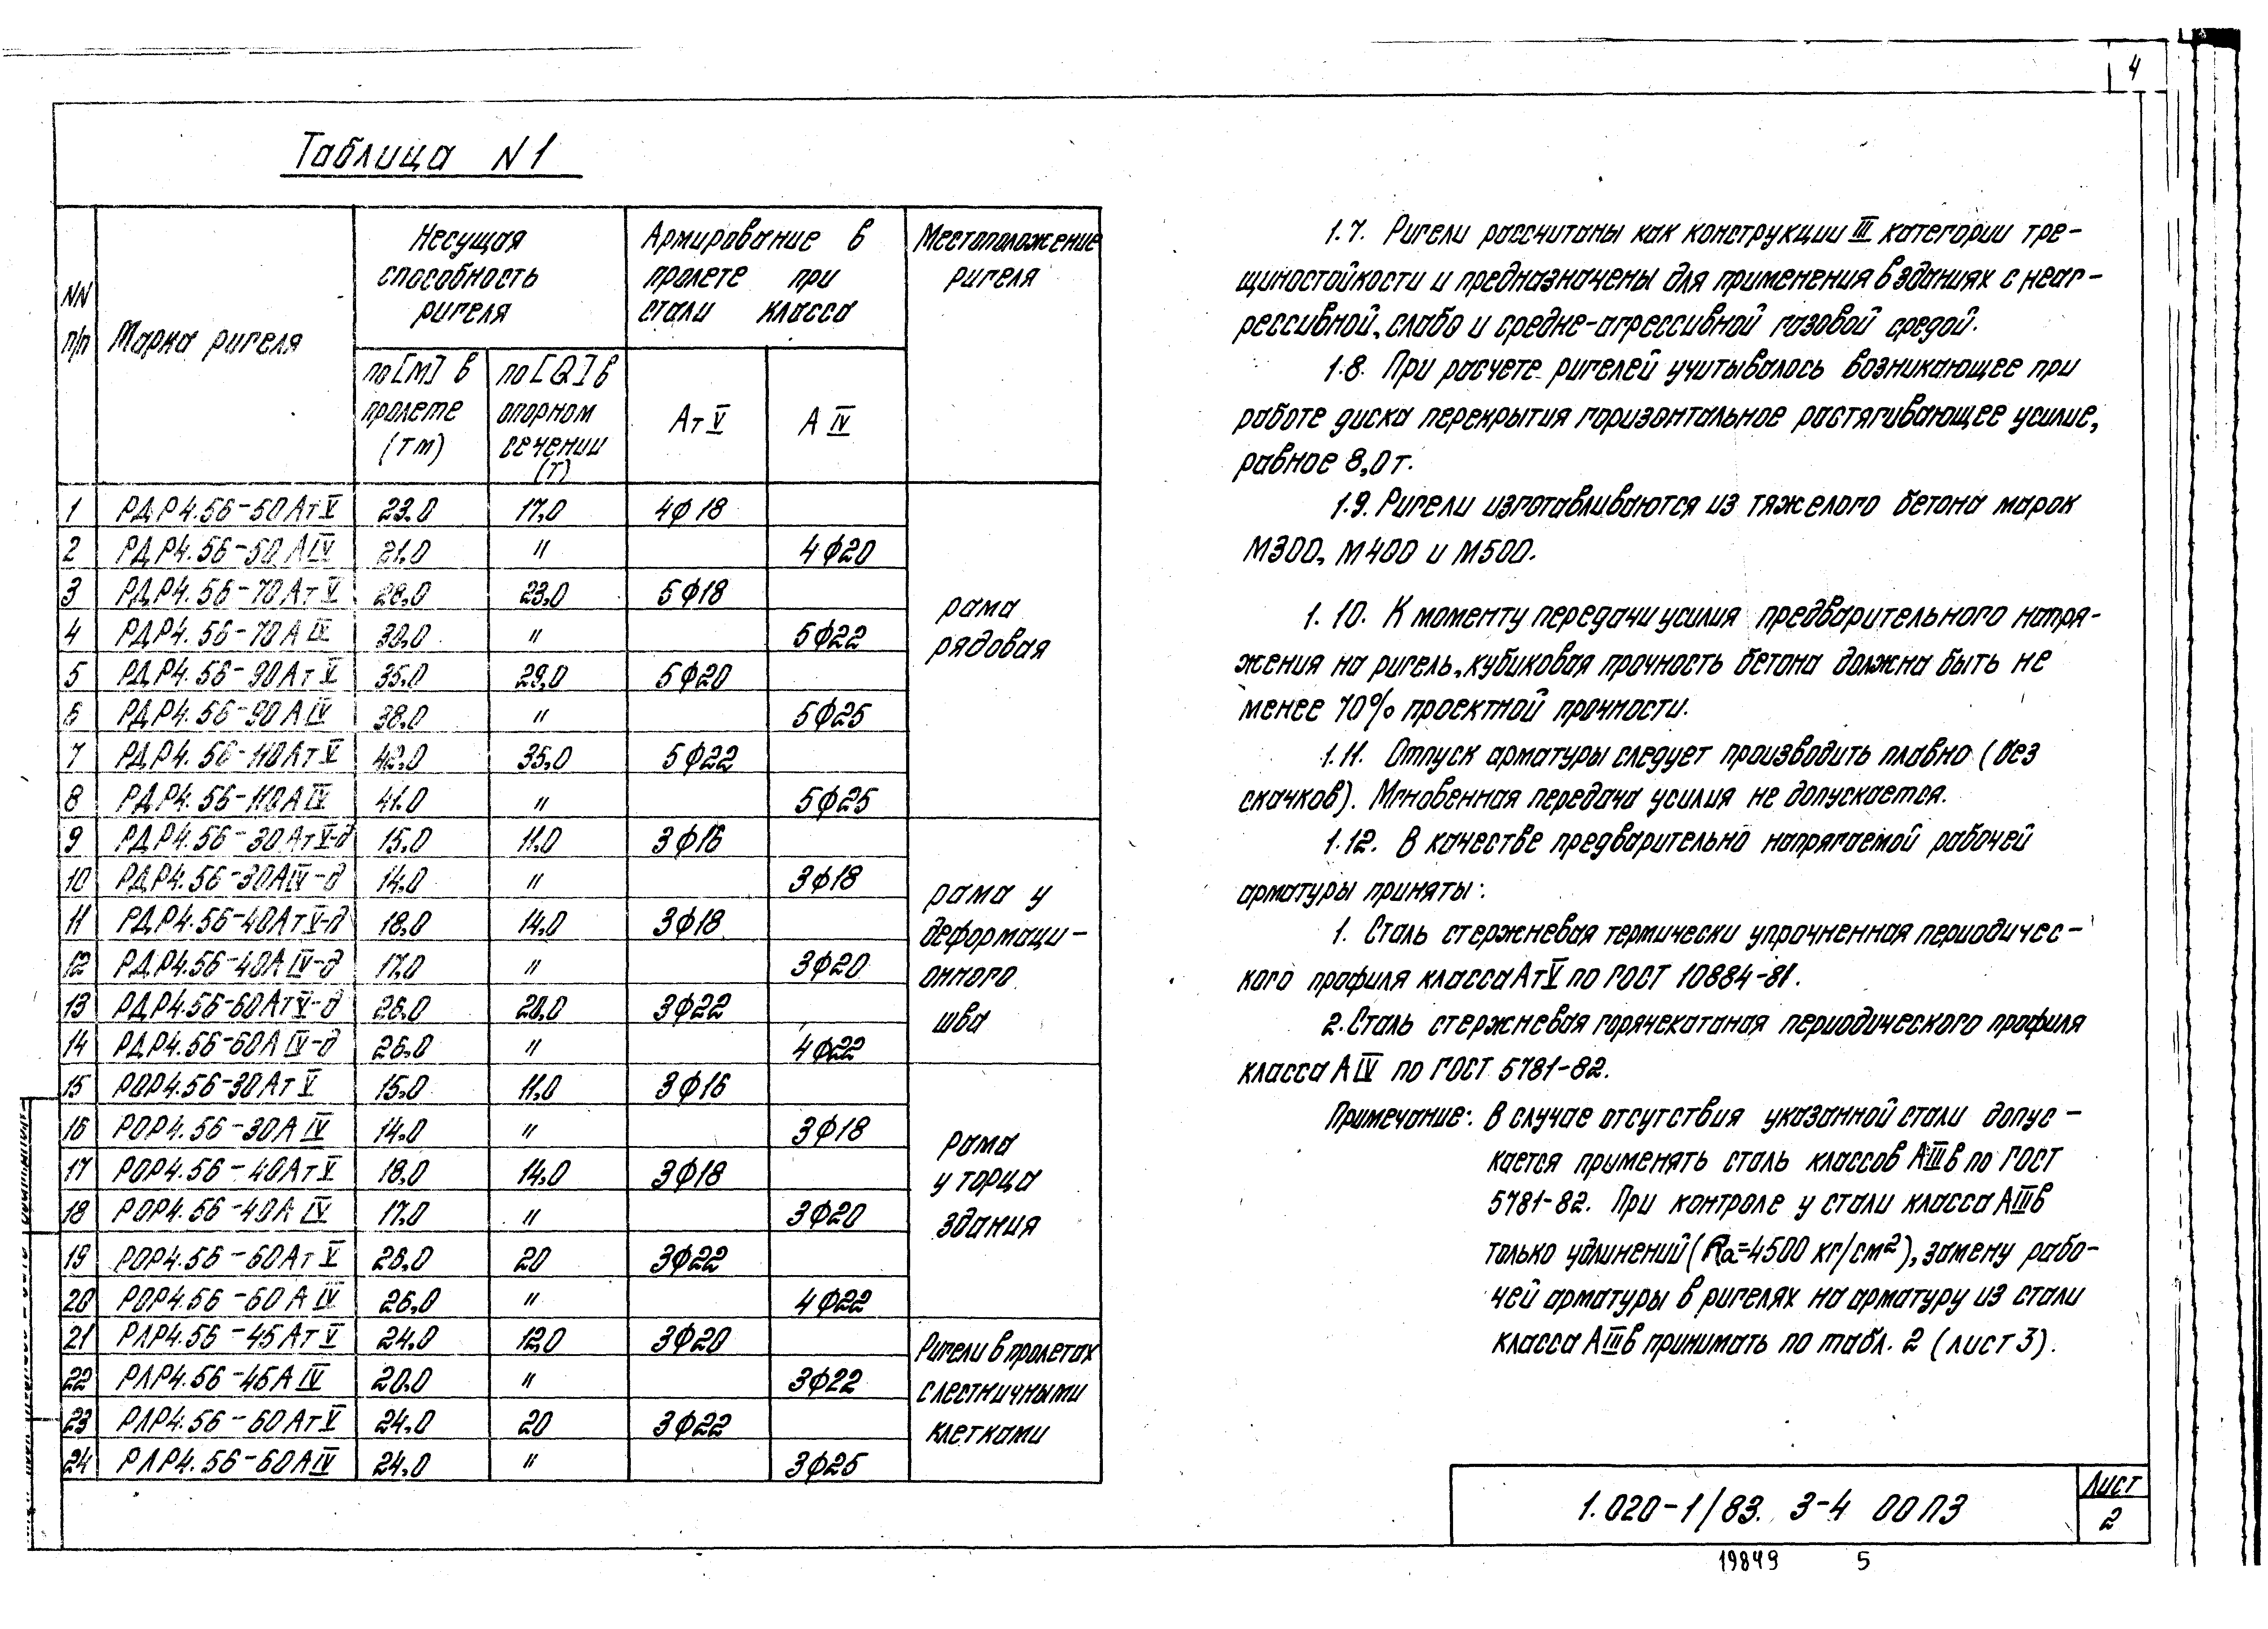 4
Таблица N1
NN п/п
Марка ригеля
Несущая способность ригеля
Армирование в пролете при стали класса
Местоположение ригеля
по [М] в пролете (тм)
по [Q] в опорном сечении (т)
Ат V
А IV
1 РДР4.56-50Ат V 23,0 17,0 4ф18
2 РДР4.56-50 А IV 21,0 " 4ф20
3 РДР4.56-70Ат V 28,0 23,0 5ф18
4 РДР4.56-70 А IV 30,0 " 5ф22
5 РДР4.56-90Ат V 35,0 29,0 5ф20
6 РДР4.56-90 А IV 38,0 " 5ф25
7 РДР4.56-110Ат V 42,0 35,0 5ф22
8 РДР4.56-110А IV 41,0 " 5ф25
рама
рядовая
9 РДР4.56-30Ат V-д 15,0 11,0 3ф16
10 РДР4.56-30А IV-д 14,0 " 3ф18
11 РДР4.56-40Ат V-д 18,0 14,0 3ф18
12 РДР4.56-40А IV-д 17,0 " 3ф20
13 РДР4.56-60Ат V-д 26,0 20,0 3ф22
14 РДР4.56-60А IV-д 26,0 " 4ф22
рама у
деформаци-
онного
шва
15 РОР4.56-30Ат V 15,0 11,0 3ф16
16 РОР4.56-30А IV 14,0 " 3ф18
17 РОР4.56-40Ат V 18,0 14,0 3ф18
18 РОР4.56-40А IV 17,0 " 3ф20
19 РОР4.56-60Ат V 26,0 20 3ф22
20 РОР4.56-60 А IV 26,0 " 4ф22
рама
у торца
здания
21 РЛР4.56-45Ат V 24,0 12,0 3ф20
22 РЛР4.56-45А IV 20,0 " 3ф22
23 РЛР4.56-60Ат V 24,0 20 3ф22
24 РЛР4.56-60А IV 24,0 " 3ф25
Ригели в пролетах
с лестничными
клетками
1.7. Ригели рассчитаны как конструкции III категории тре-
щиностойкости и предназначены для применения в зданиях с неаг-
рессивной, слабо и средне-агрессивной газовой средой.
1.8. При расчете ригелей учитывалось возникающее при
работе диска перекрытия горизонтальное растягивающее усилие,
равное 8,0т.
1.9. Ригели изготавливаются из тяжелого бетона марок
М300, М400 и М500.
1.10. К моменту передачи усилия предварительного напря-
жения на ригель, кубиковая прочность бетона должна быть не
менее 70% проектной прочности.
1.11. Отпуск арматуры следует производить плавно (без
скачков). Мгновенная передача усилия не допускается.
1.12. В качестве предварительно напрягаемой рабочей
арматуры приняты:
1. Сталь стержневая термически упрочненная периодичес-
кого профиля класса Ат V по ГОСТ 10884-81.
2. Сталь стержневая горячекатаная периодического профиля
класса А IV по ГОСТ 5781-82.
Примечание: В случае отсутствия указанной стали допус-
кается применять сталь классов АIIIв по ГОСТ
5781-82. При контроле у стали класса АIIIв
только удлинений (Ra=4500 кг/см²), замену рабо-
чей арматуры в ригелях на арматуру из стали
класса АIIIв принимать по табл. 2 (лист 3).
1.020-1/83. 3-4 00ПЗ
Лист
2
19849 5